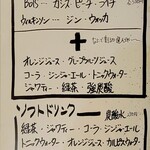 BOLS…… カシス・ピーチ・ライチ
ウィルキンソン …… ジン・ウォッカ
+
オレンジジュース・グレープフルーツジュース
コーラ・ジンジャーエール・トニックウォーター
ジャワティー・緑茶・強炭酸
ソフトドリンク
炭酸水
緑茶・ジャワティー・コーラ・ジンジャーエール
トニックウォーター・オレンジジュース・カルピスウォーター